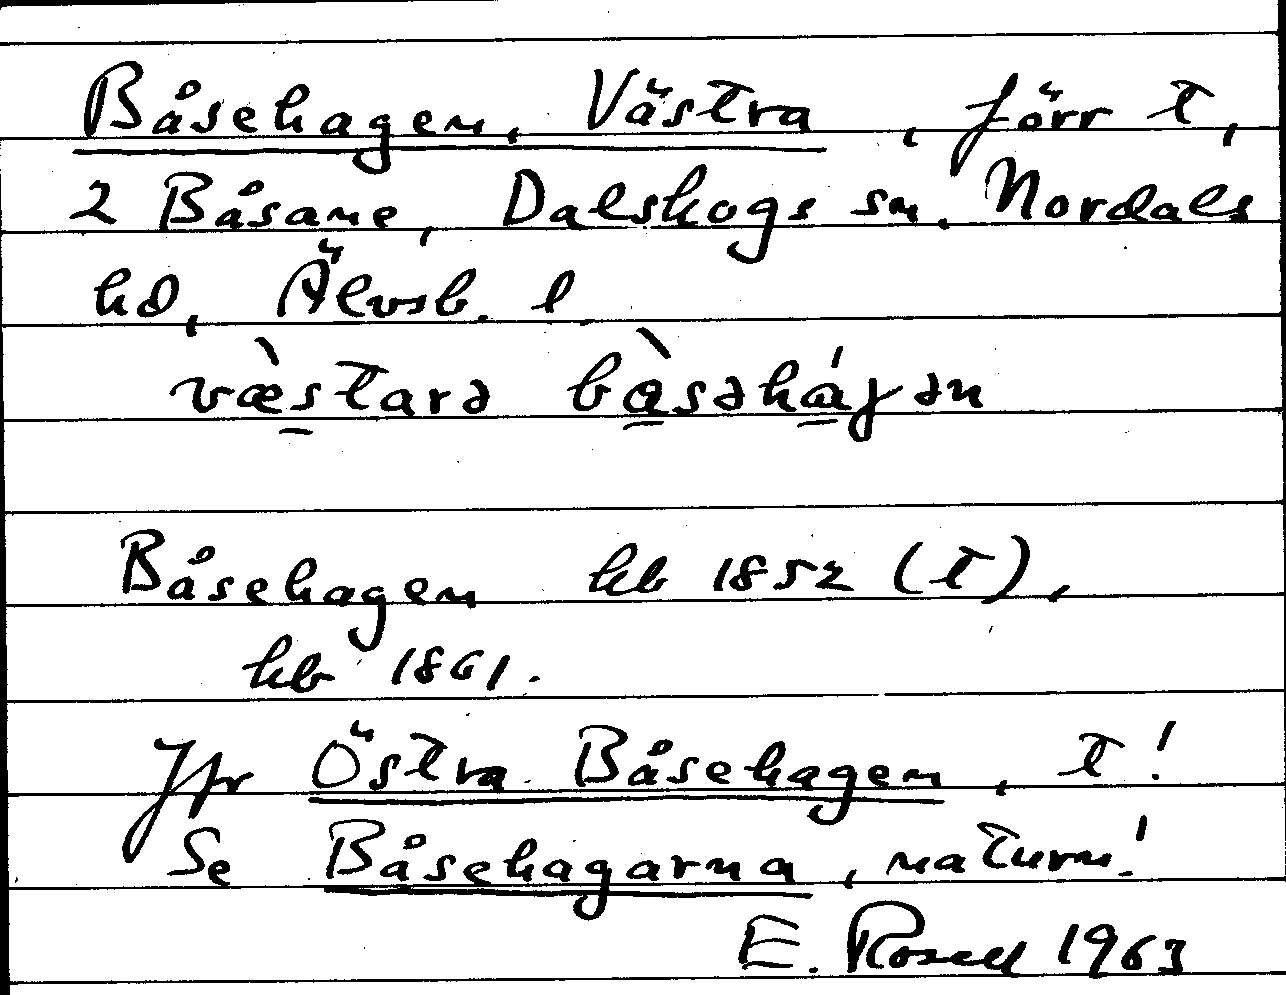 Båsehagen, Västra, förr t,
2 Båsane, Dalskogs sn. Nordals
hd, Älvsb. l.
væ̀starə bɑ̀səhɑ́gən
Båsehagen hb 1852 (t),
hb 1861.
Jfr Östra Båsehagen, t!
Se Båsehagarna, naturn!
E. Rosell 1963